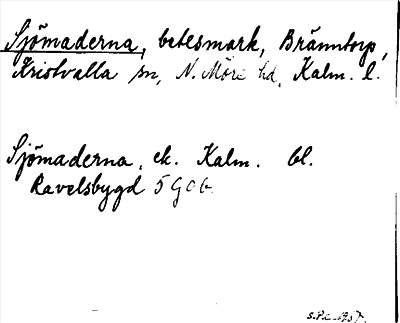 Sjömaderna, betesmark, Bränntorp,
Kristvalla sn, N. Möre hd, Kalm. l.
Sjömaderna, ek. Kalm. bl.
Ravelsbygd 5 G 0 b